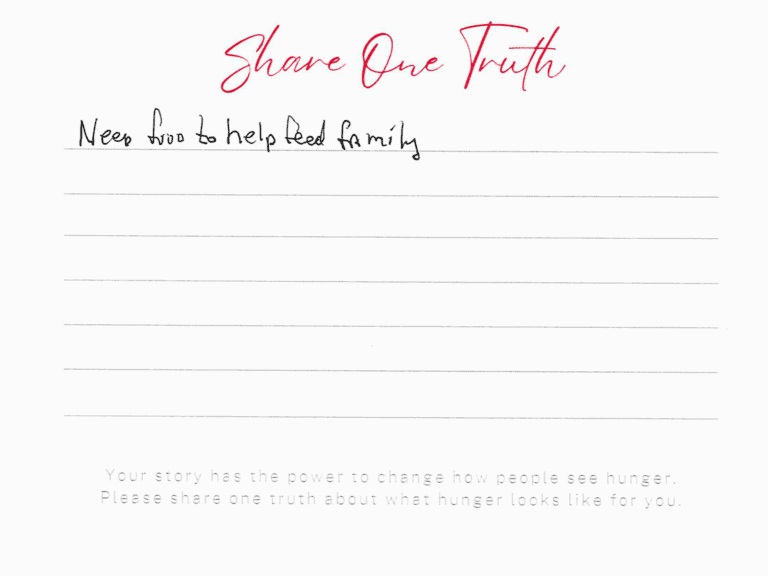 Share One Truth
Need food to help feed family
Your story has the power to change how people see hunger.
Please share one truth about what hunger looks like for you.